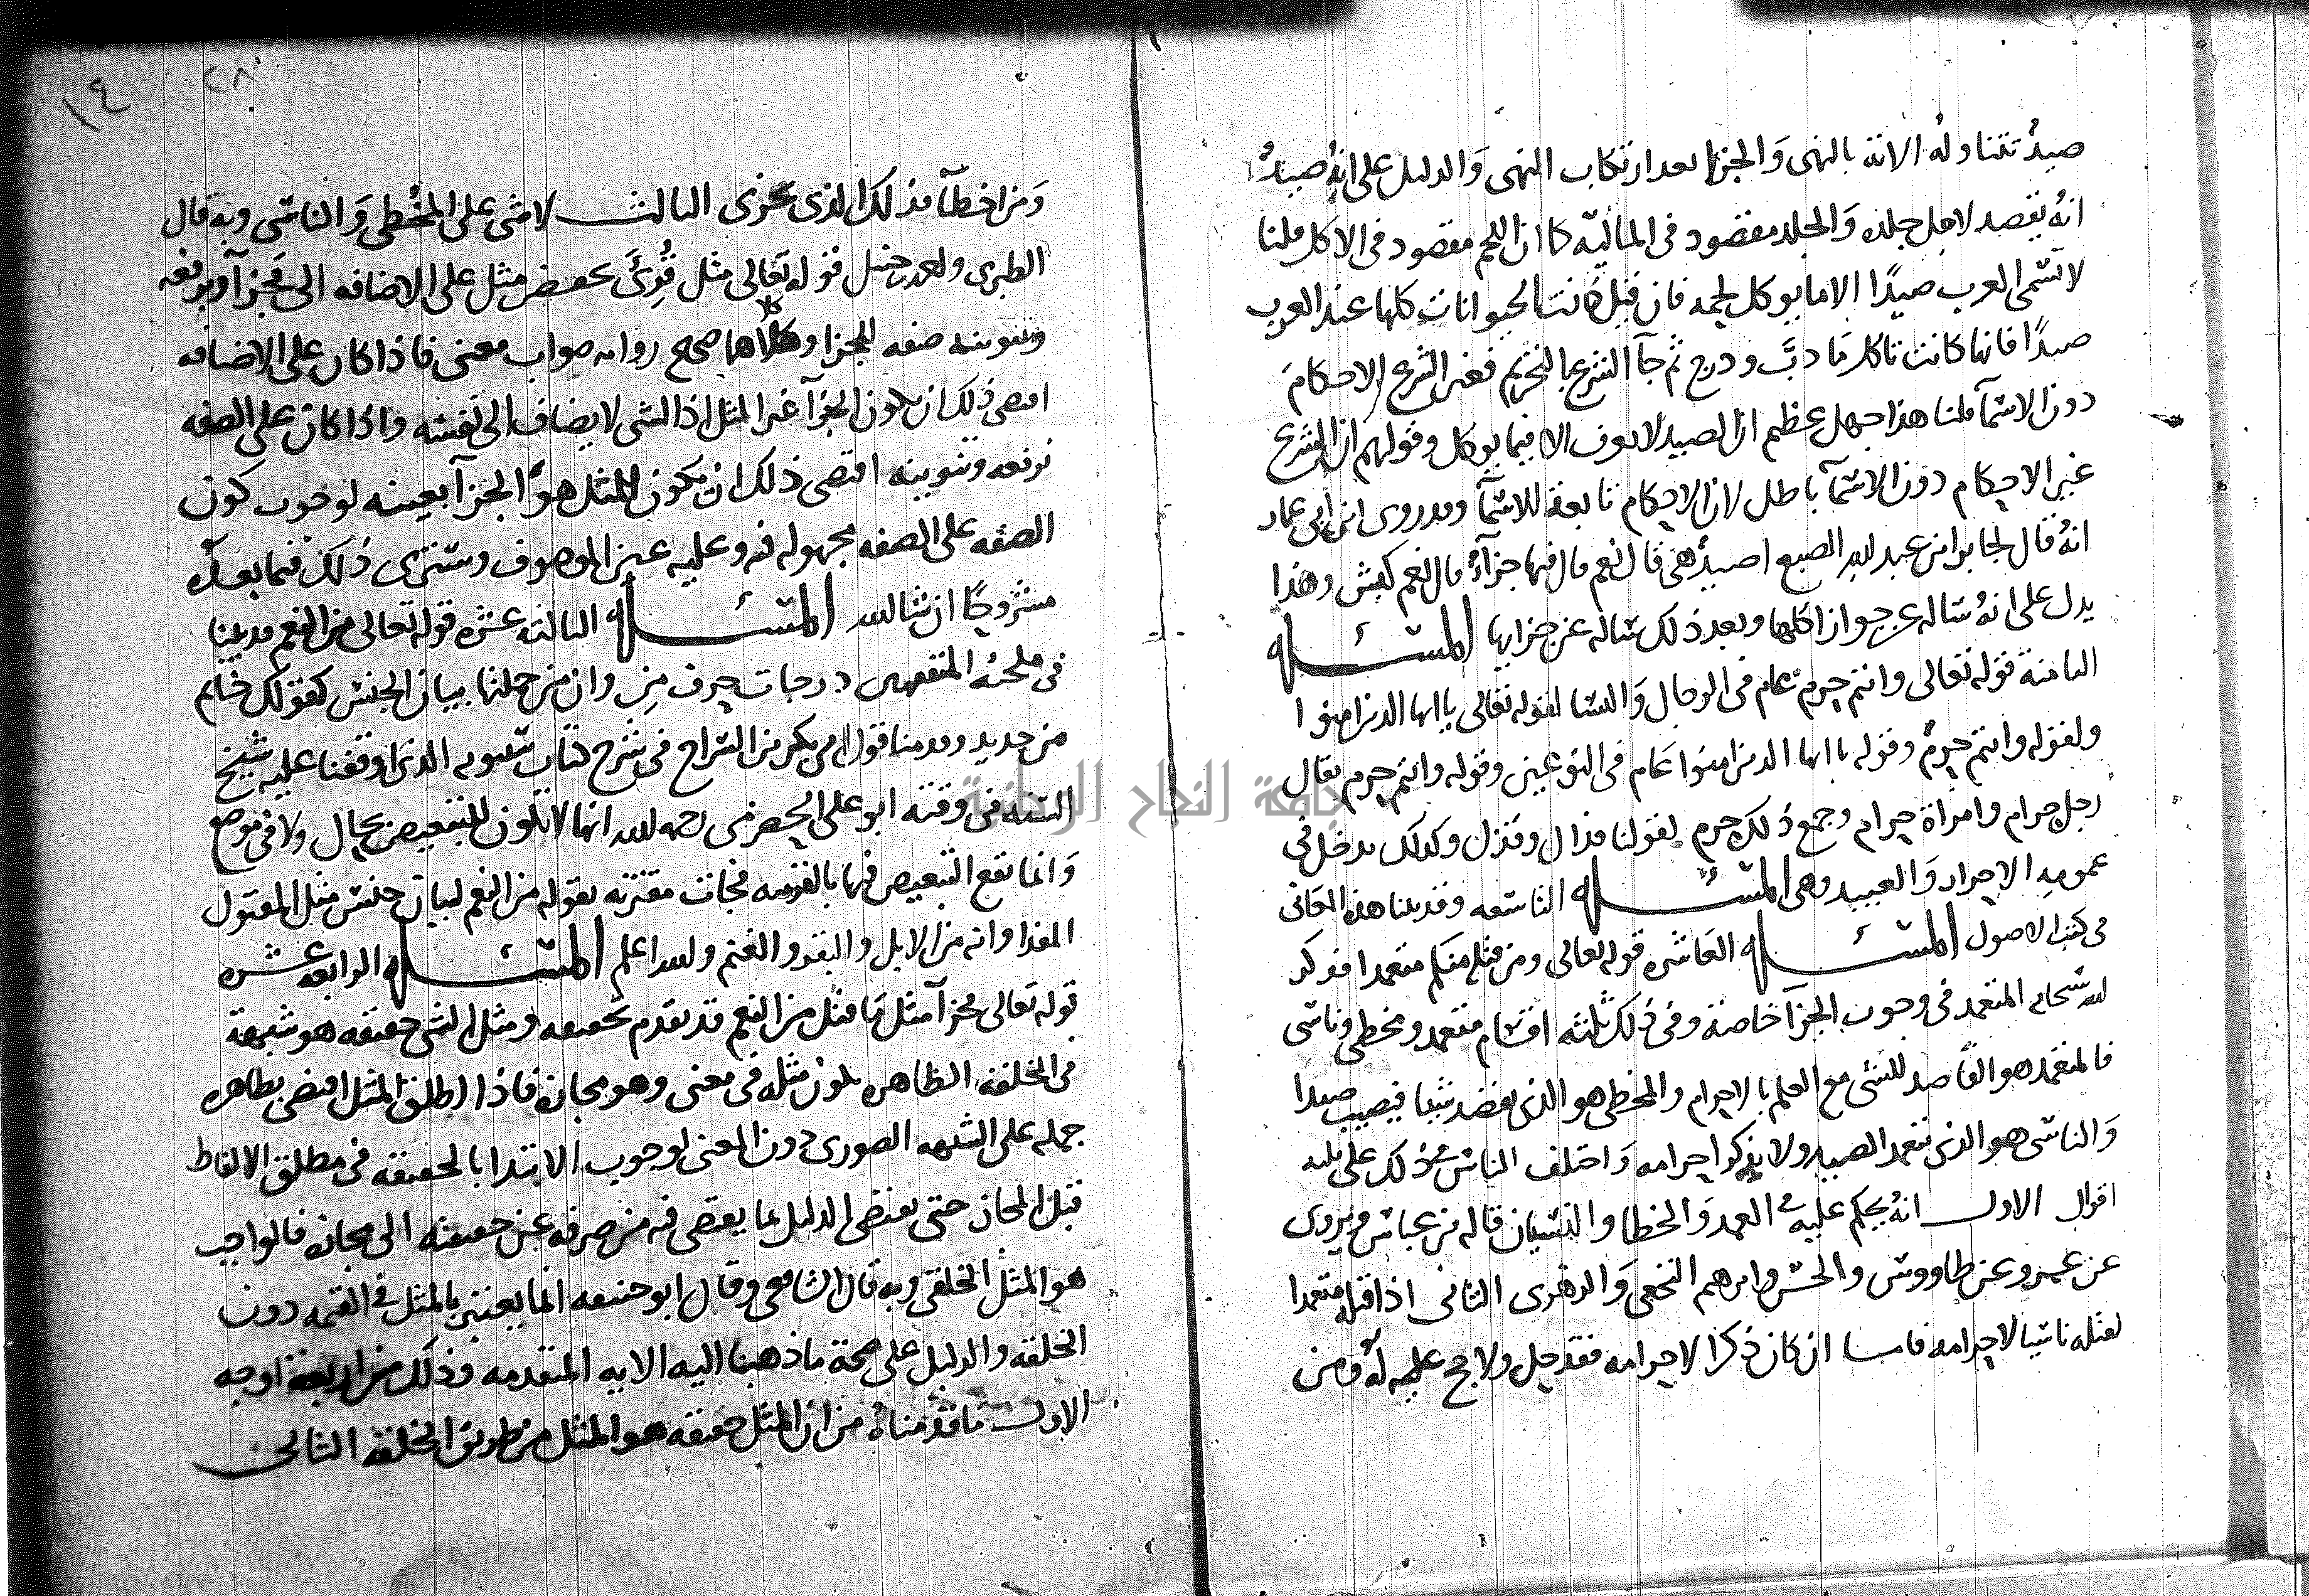 صيدٌ تتناوله الاية بالنهى وَالجزا بعد ارتكاب النهى وَالدليل على انهُ صيدٌ
انهُ يقصد لاجل جلده وَالجلد مقصود فى الماليّة كما ان اللحم مقصود فى الاكل قلنا
لا تسمى العرب صيدًا الا ما يوكل لحمه فان قيل كانت الحيوانات كلها عند العرب
صيدًا فانها كانت تاكل مَا دبَّ ودرج ثم جآ الشرع بالتحريم فغير الشرع الاحكامَ
دون الاسمآ قلنا هذا جهل عظيم ان الصيد لا يعرف الا فيما يوكل وقولهم ان الشرع
غير الاحكام دون الاسمآ باطل لان الاحكام تابعة للاسمآ وقد روى ابن ابى عمار
انهُ قال لجابر ابن عبد الله الضبع اصيدٌ هى قال نعم قال فيها جزآءٌ قال نعم كبش وهذا
يدل على انهُ ساله عن جواز اكلها وبعد ذلك ساله عن جزايها المسئلة
الثامنة قوله تعالى وانتم حرم عام فى الرجال وَالنسا لقوله تعالى يا ايها الذين امنوا
ولقوله وانتم حرمٌ وقوله يا ايها الذين امنوا عَام فى النوعين وقوله وانتم حرم يقال
رجل حرام وامراة حرام وجمع ذلك حرم كقولنا قذال وقذل وكذلك يدخل فى
عمومه الاحرار وَالعبيد وهى المسئلة التاسعه وقد بينا هذه المعانى
فى كتب الاصول المسئلة العاشره قوله تعالى ومن قتله منكم متعمدا فذكر
الله سبحانه المتعمد فى وجوب الجزآ خاصة وفى ذلك ثلثه اقسام متعمد ومخطى وناسى
فالمتعمد هو القاصد للشى مع العلم بالاحرام والمخطى هو الذى يقصد شيا فيصيب صيدا
وَالناسى هو الذى يتعمد الصيد ولا يذكر احرامه وَاختلف الناس فى ذلك على ثلثه
اقوال الاول انهُ يحكم عليه فى العمد وَالخطا والنسيان قاله بن عباس ويروى
عن عمر وعن طاووس والحسن وابرهيم النخعى وَالزهرى الثانى اذا قتله متعمدا
لقتله ناسيا لاحرامه فاما ان كان ذكرا لاحرامه فقد حل ولا حج له ومن
٢٨
١٤
وَمن اخطآ فذلك الذى يجزى الثالث لا شى على المخطى وَالناسى وبه قال
الطبرى واحمد بن حنبل قوله تعالى مثل قُرِئَ بخفض مثل على الاضافه الى فجزآ وبرفعه
وتنوينه صفه للجزا وكلاهما صحيح روايه صواب معنى فاذا كان على الاضافه
اقتضى ذلك ان يكون الجزآ غير المثل اذ الشى لا يضاف الى نفسه واذا كان على الصفه
برفعه وتنوينه اقتضى ذلك ان يكون المثل هو الجزآ بعينه لوجوب كون
الصفه على الصفه مجهوله فيه وعليه عين الموصوف وسترى ذلك فيما بعدُ
مشروحًا ان شا الله المسئلة الثالثة عشره قوله تعالى من النعم قد بينا
فى ملجئة المتفقهين درجات حرف مِن وان من جملتها بيان الجنس كقولك خاتم
من حديد وقدمنا قول ابى بكر بن السراج فى شرح كتاب سيبويه الذى اوقفنا عليه شيخ
السنه فى وقته ابو على الحضرمى رحمه الله انها لا تكون للتبعيض بحال ولا فى موضع
وَانما يقع التبعيض فيها بالقرينه فجات مقترنه بقوله من النعم لبيان جنس مثل المقتول
المفدا وانه من الابل والبقر والغنم والله اعلم المسئلة الرابعه عشره
قوله تعالى فجزآ مثل مَا قتل من النعم قد تقدم تحقيقه ومثل الشى حقيقه هو شبهه
فى الخلقه الظاهره يكون مثله فى معنى وهو مجازه فاذا اطلق المثل اقتضى بظاهره
حمله على الشبه الصورى دون المعنى لوجوب الابتدا بالحقيقه فى مطلق الالفاظ
قبل المجاز حتى يقتضى الدليل ما يقضى فيه من صرفه عن حقيقته الى مجازه فالواجب
هو المثل الخلقى وبه قال الشافعى وقال ابو حنيفه انما يعتبر بالمثل فى القيمه دون
الخلقه والدليل على صحة ما ذهبنا اليه الايه المتقدمه وذلك من اربعة اوجه
الاول مَا قدمناهُ من ان المثل حقيقه هو المثل من طريق الخلقه الثانى